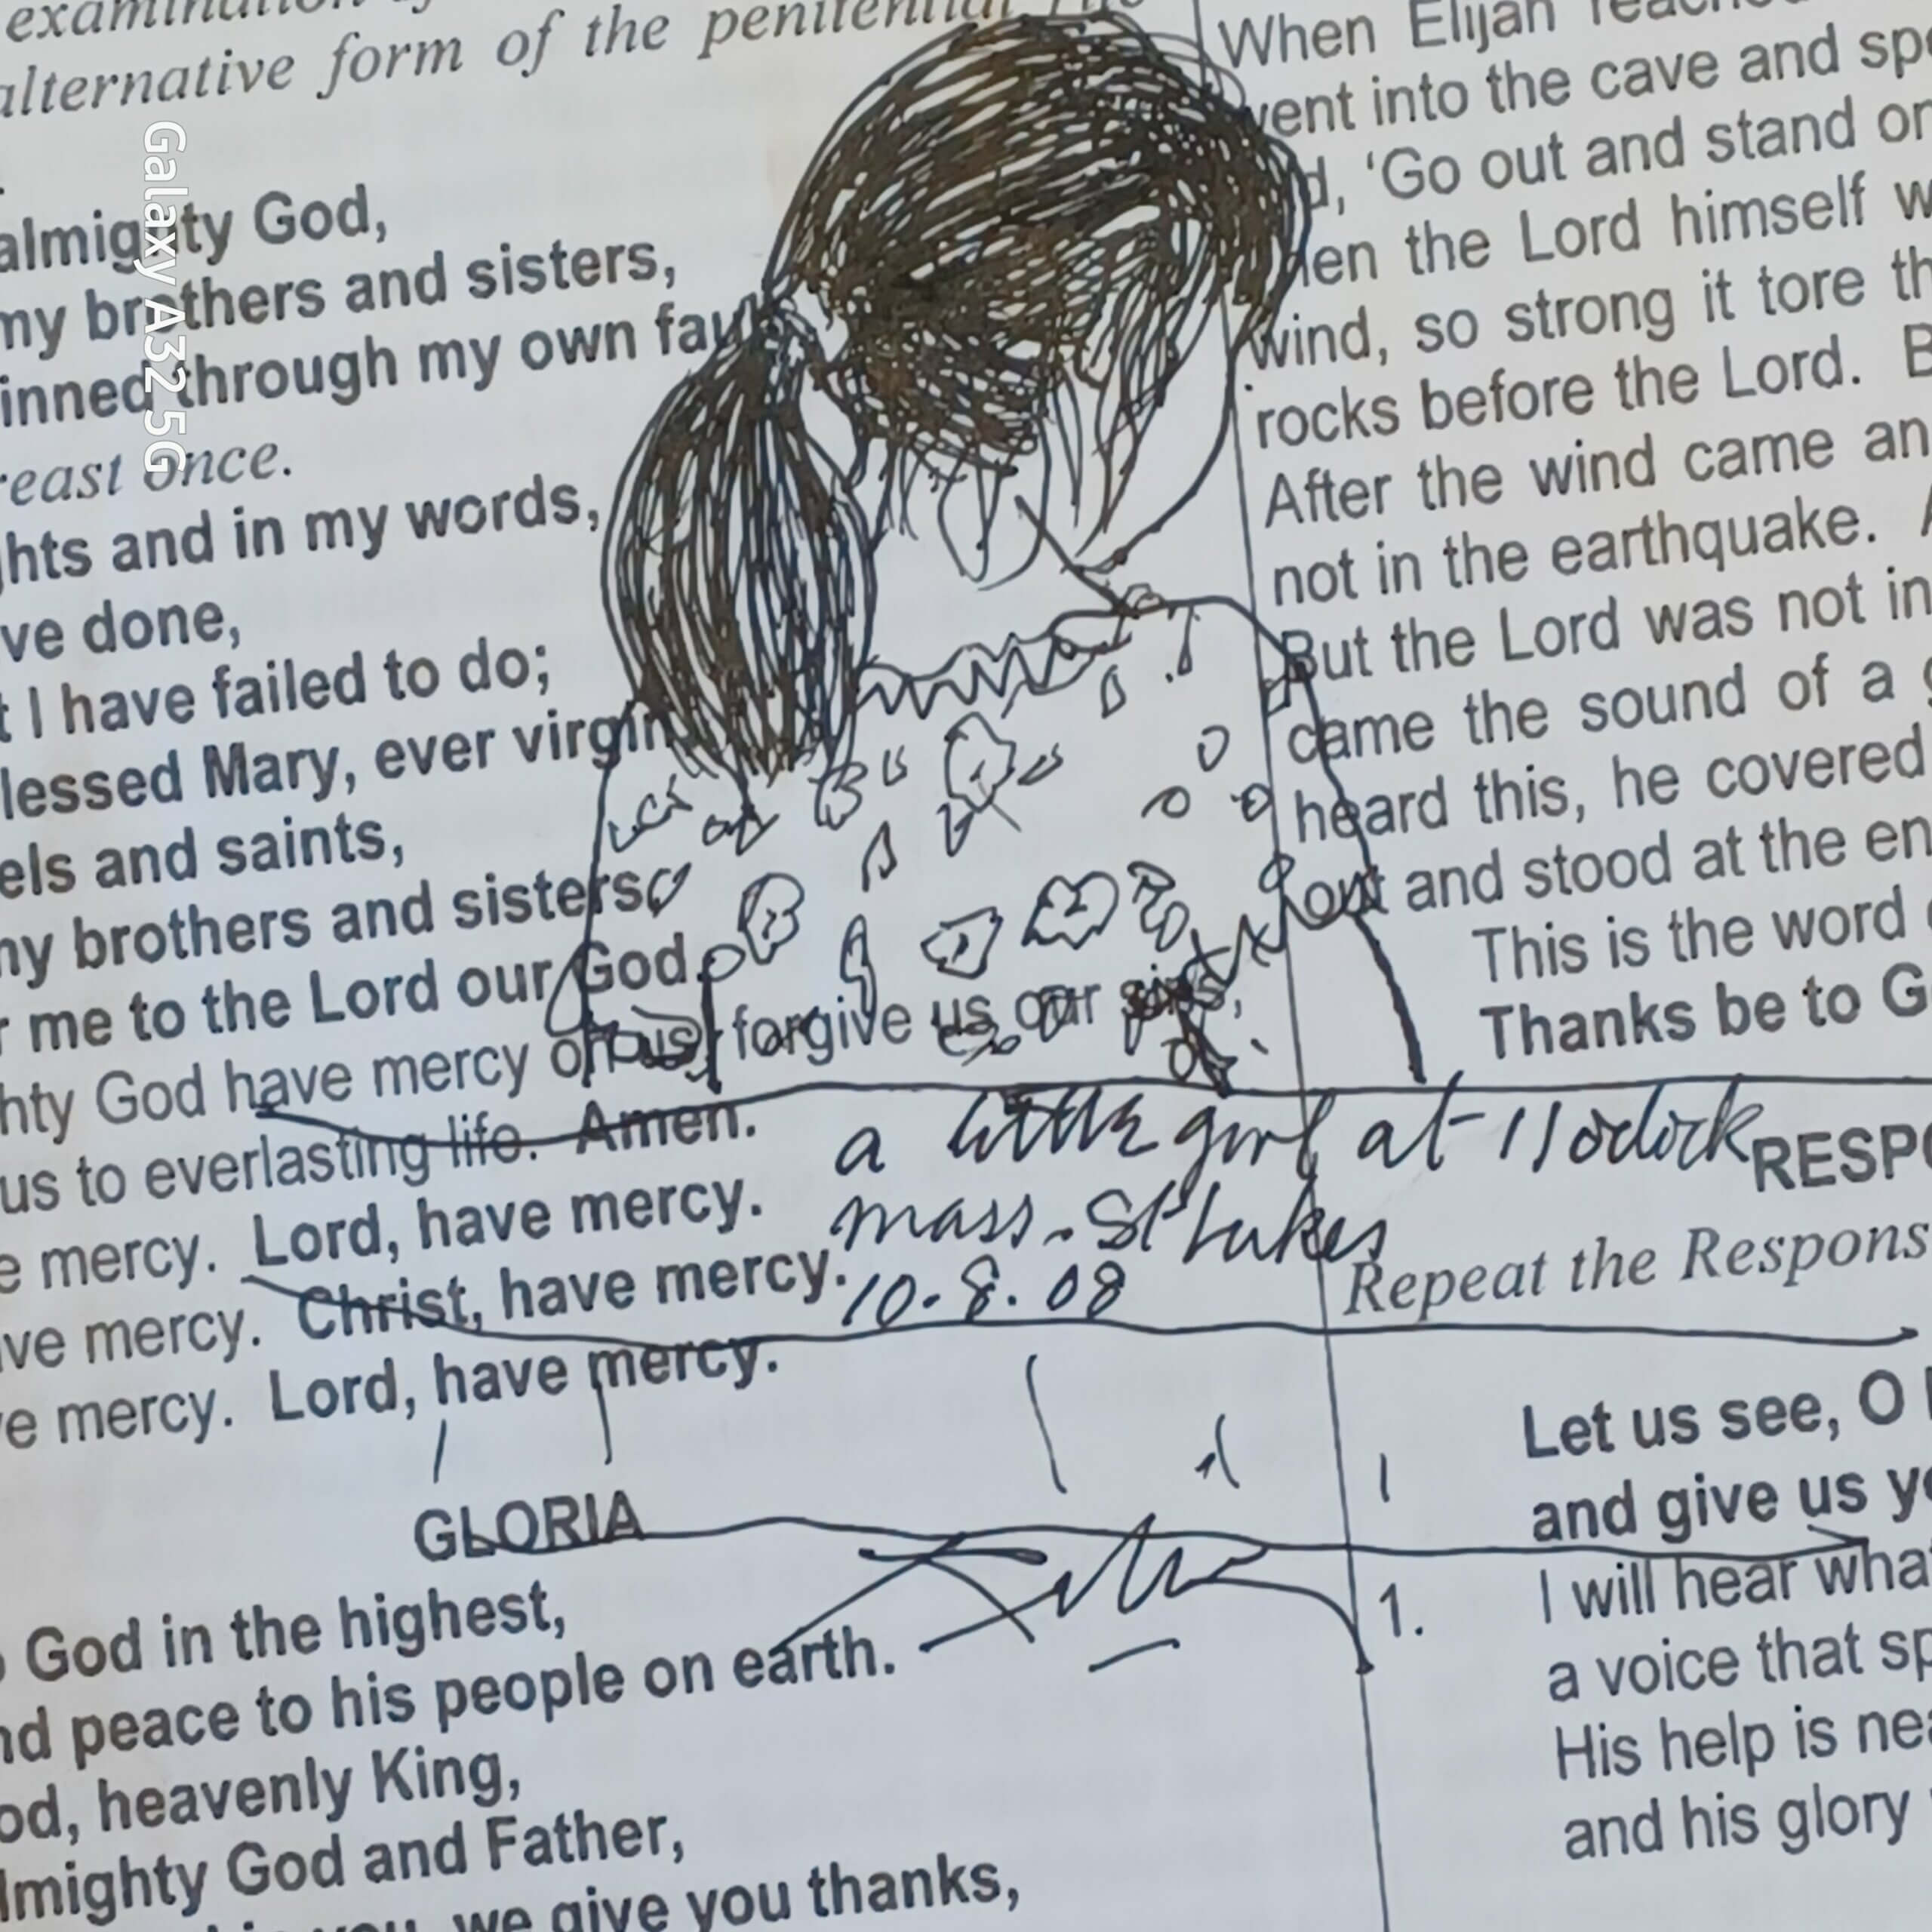 examination
alternative form of the penitential
almighty God,
my brothers and sisters,
inned through my own fau
reast once.
hts and in my words,
ve done,
t I have failed to do;
lessed Mary, ever virgin
els and saints,
my brothers and sisters
r me to the Lord our God.
hty God have mercy on us, forgive us our sins,
us to everlasting life. Amen.
e mercy. Lord, have mercy.
ve mercy. Christ, have mercy.
ve mercy. Lord, have mercy.
GLORIA
God in the highest,
nd peace to his people on earth.
od, heavenly King,
lmighty God and Father,
we give you thanks,
a little girl at 11 oclock
mass. St Lukes
10.8.08
When Elijah reac
went into the cave and spe
d, 'Go out and stand on
en the Lord himself w
wind, so strong it tore th
rocks before the Lord. B
After the wind came an
not in the earthquake. A
But the Lord was not in
came the sound of a g
heard this, he covered
out and stood at the en
This is the word o
Thanks be to G
RESPO
Repeat the Respons
Let us see, O L
and give us yo
1. I will hear wha
a voice that sp
His help is nea
and his glory
Galaxy A32 5G